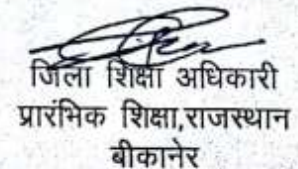 जिला शिक्षा अधिकारी
प्रारंभिक शिक्षा,राजस्थान
बीकानेर